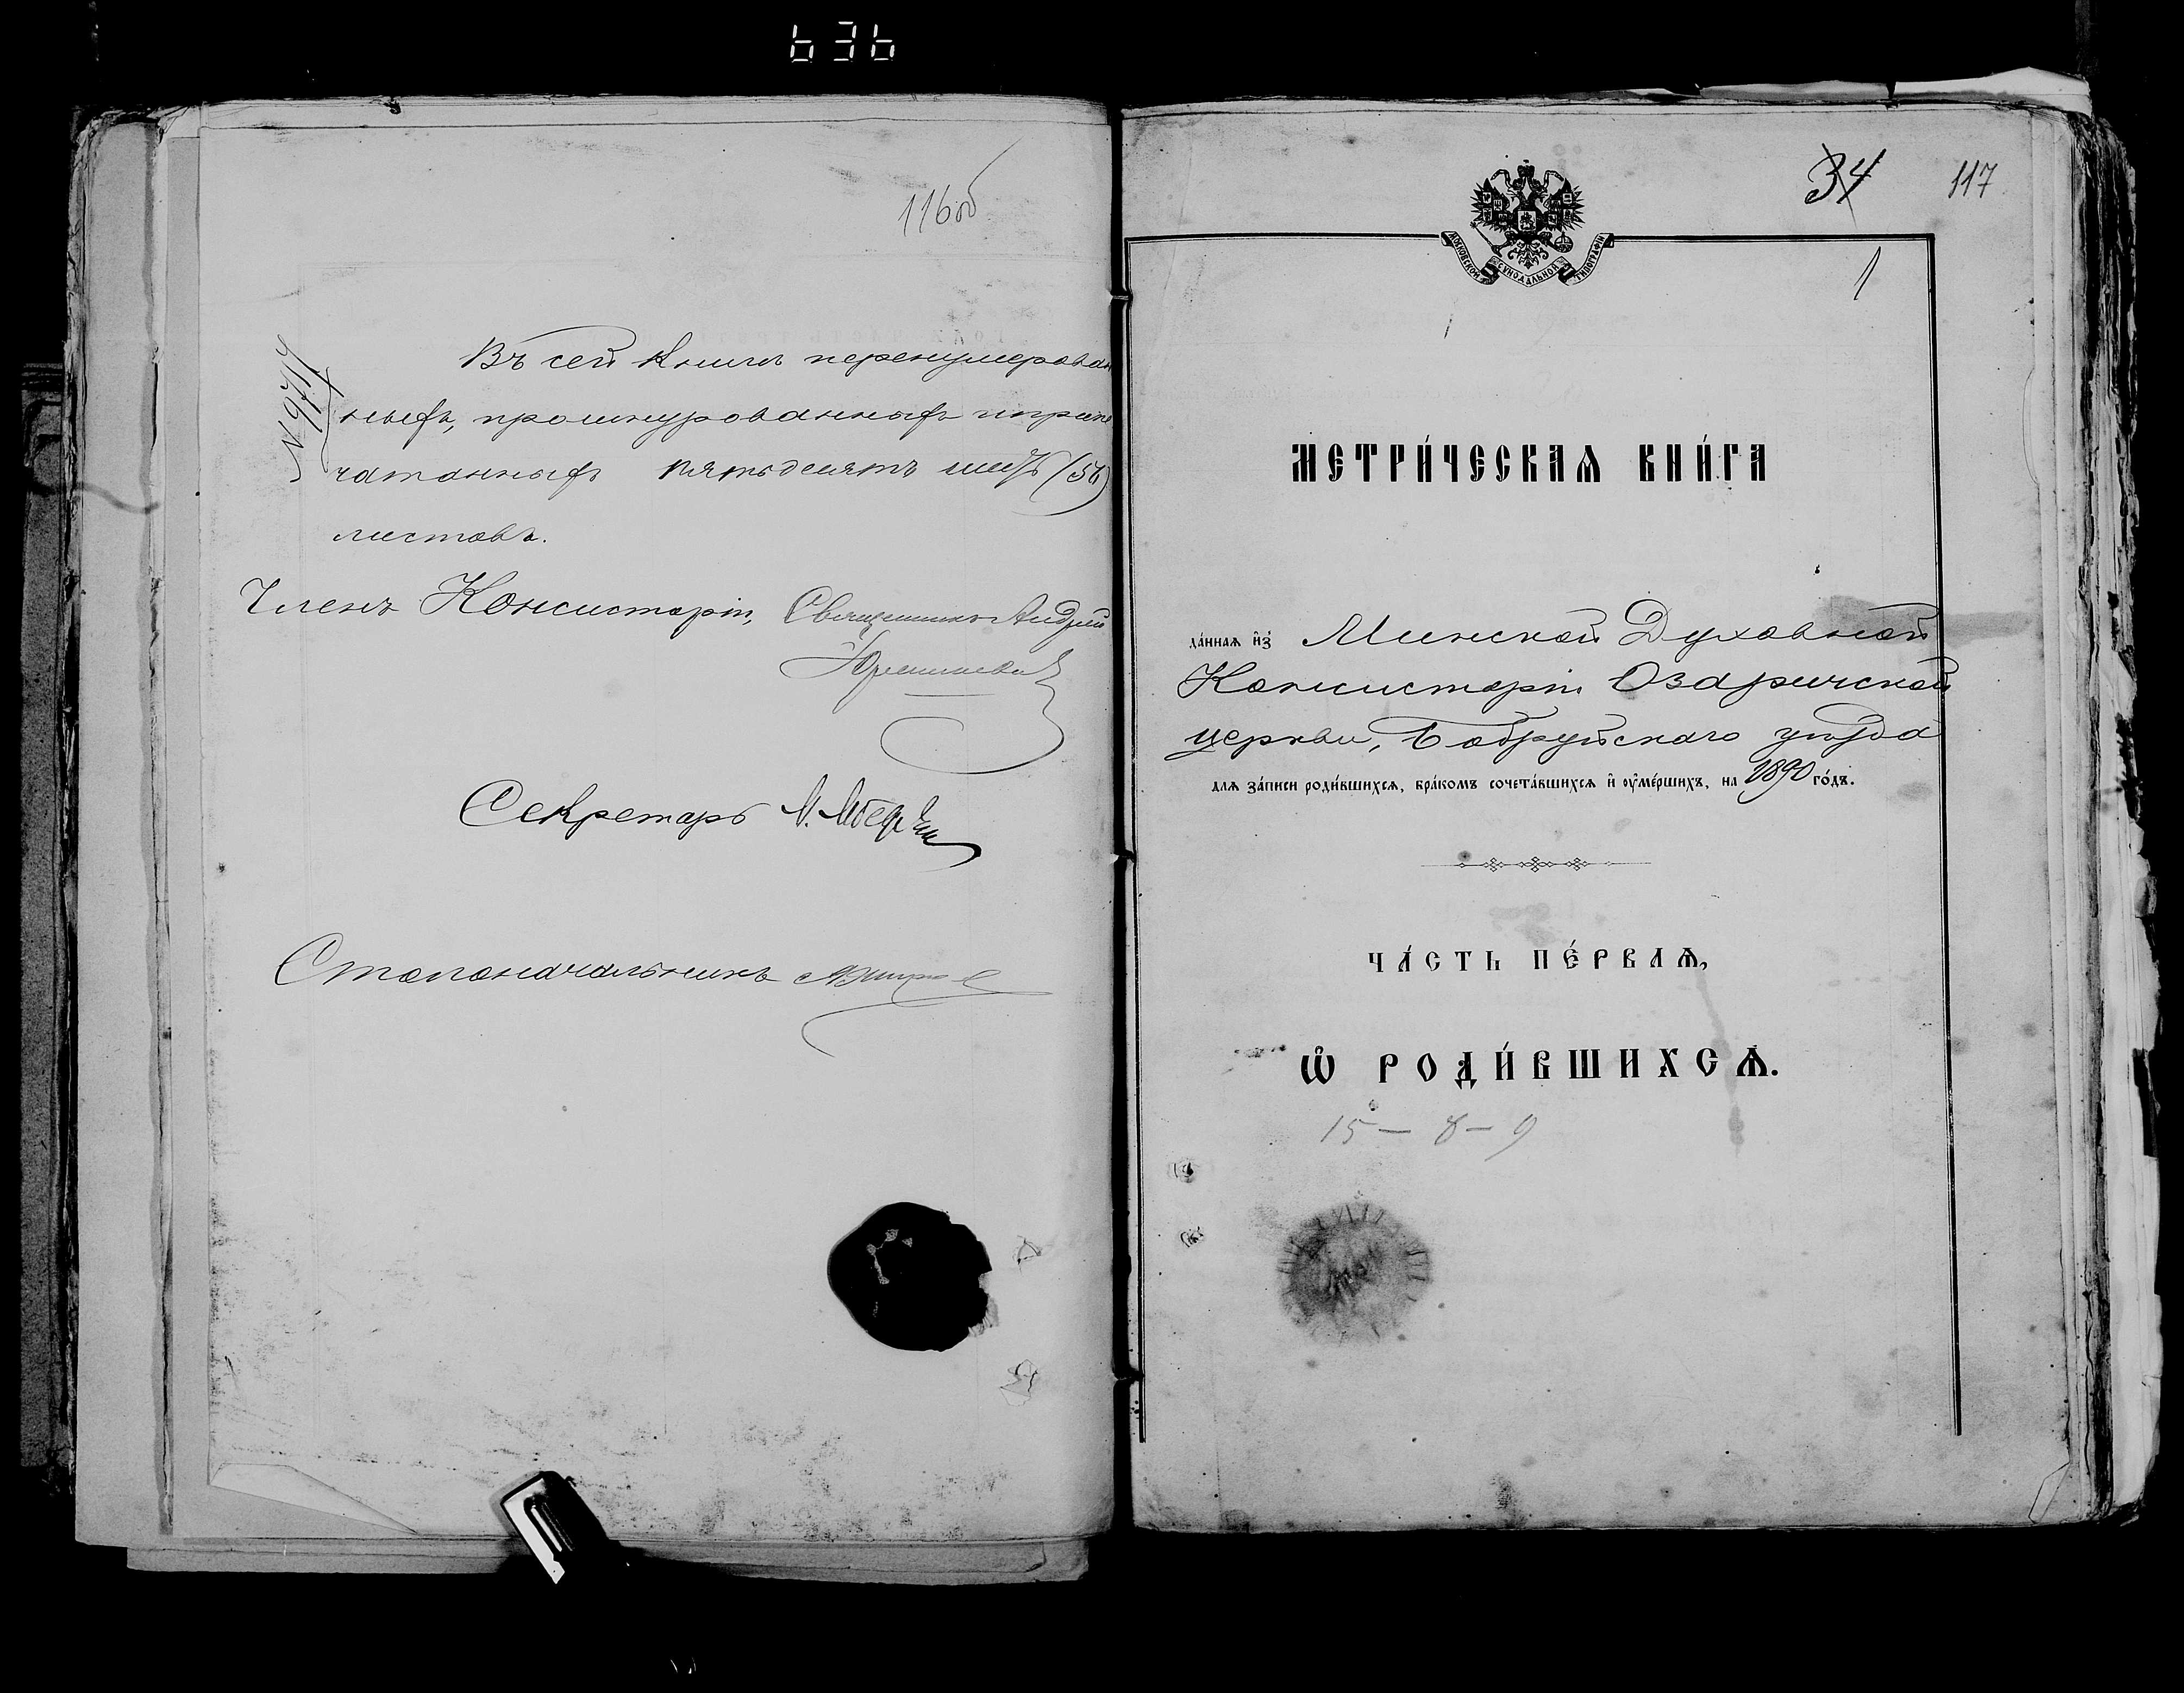 636
116об
№ 9717
Въ сей книгѣ перенумерован
ныхъ, прошнурованныхъ и припе
чатанныхъ пятьдесятъ шесть (56)
листовъ.
Членъ Консисторіи, Священникъ Андрей
Секретарь
Столоначальникъ
34 117
МОСКОВСКОЙ СѴНОДАЛЬНОЙ ТИПОГРАФІИ
1
МЕТРИ́ЧЕСКАѦ КНИ́ГА
да́ннаѧ и҆з̾ Минской Духовной
Консисторіи Озаричской
церкви, Бобруйскаго уѣзда
длѧ за́писи роди́вшихсѧ, бра́комъ сочета́вшихсѧ и҆ ᲂу҆ме́ршихъ, на 1890 го́дъ.
ЧА́СТЬ ПЕ́РВАѦ,
Ѡ҆ РОДИ́ВШИХСѦ.
15 — 8 — 9